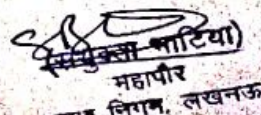 (संयुक्ता भाटिया)
महापौर
निगम, लखनऊ